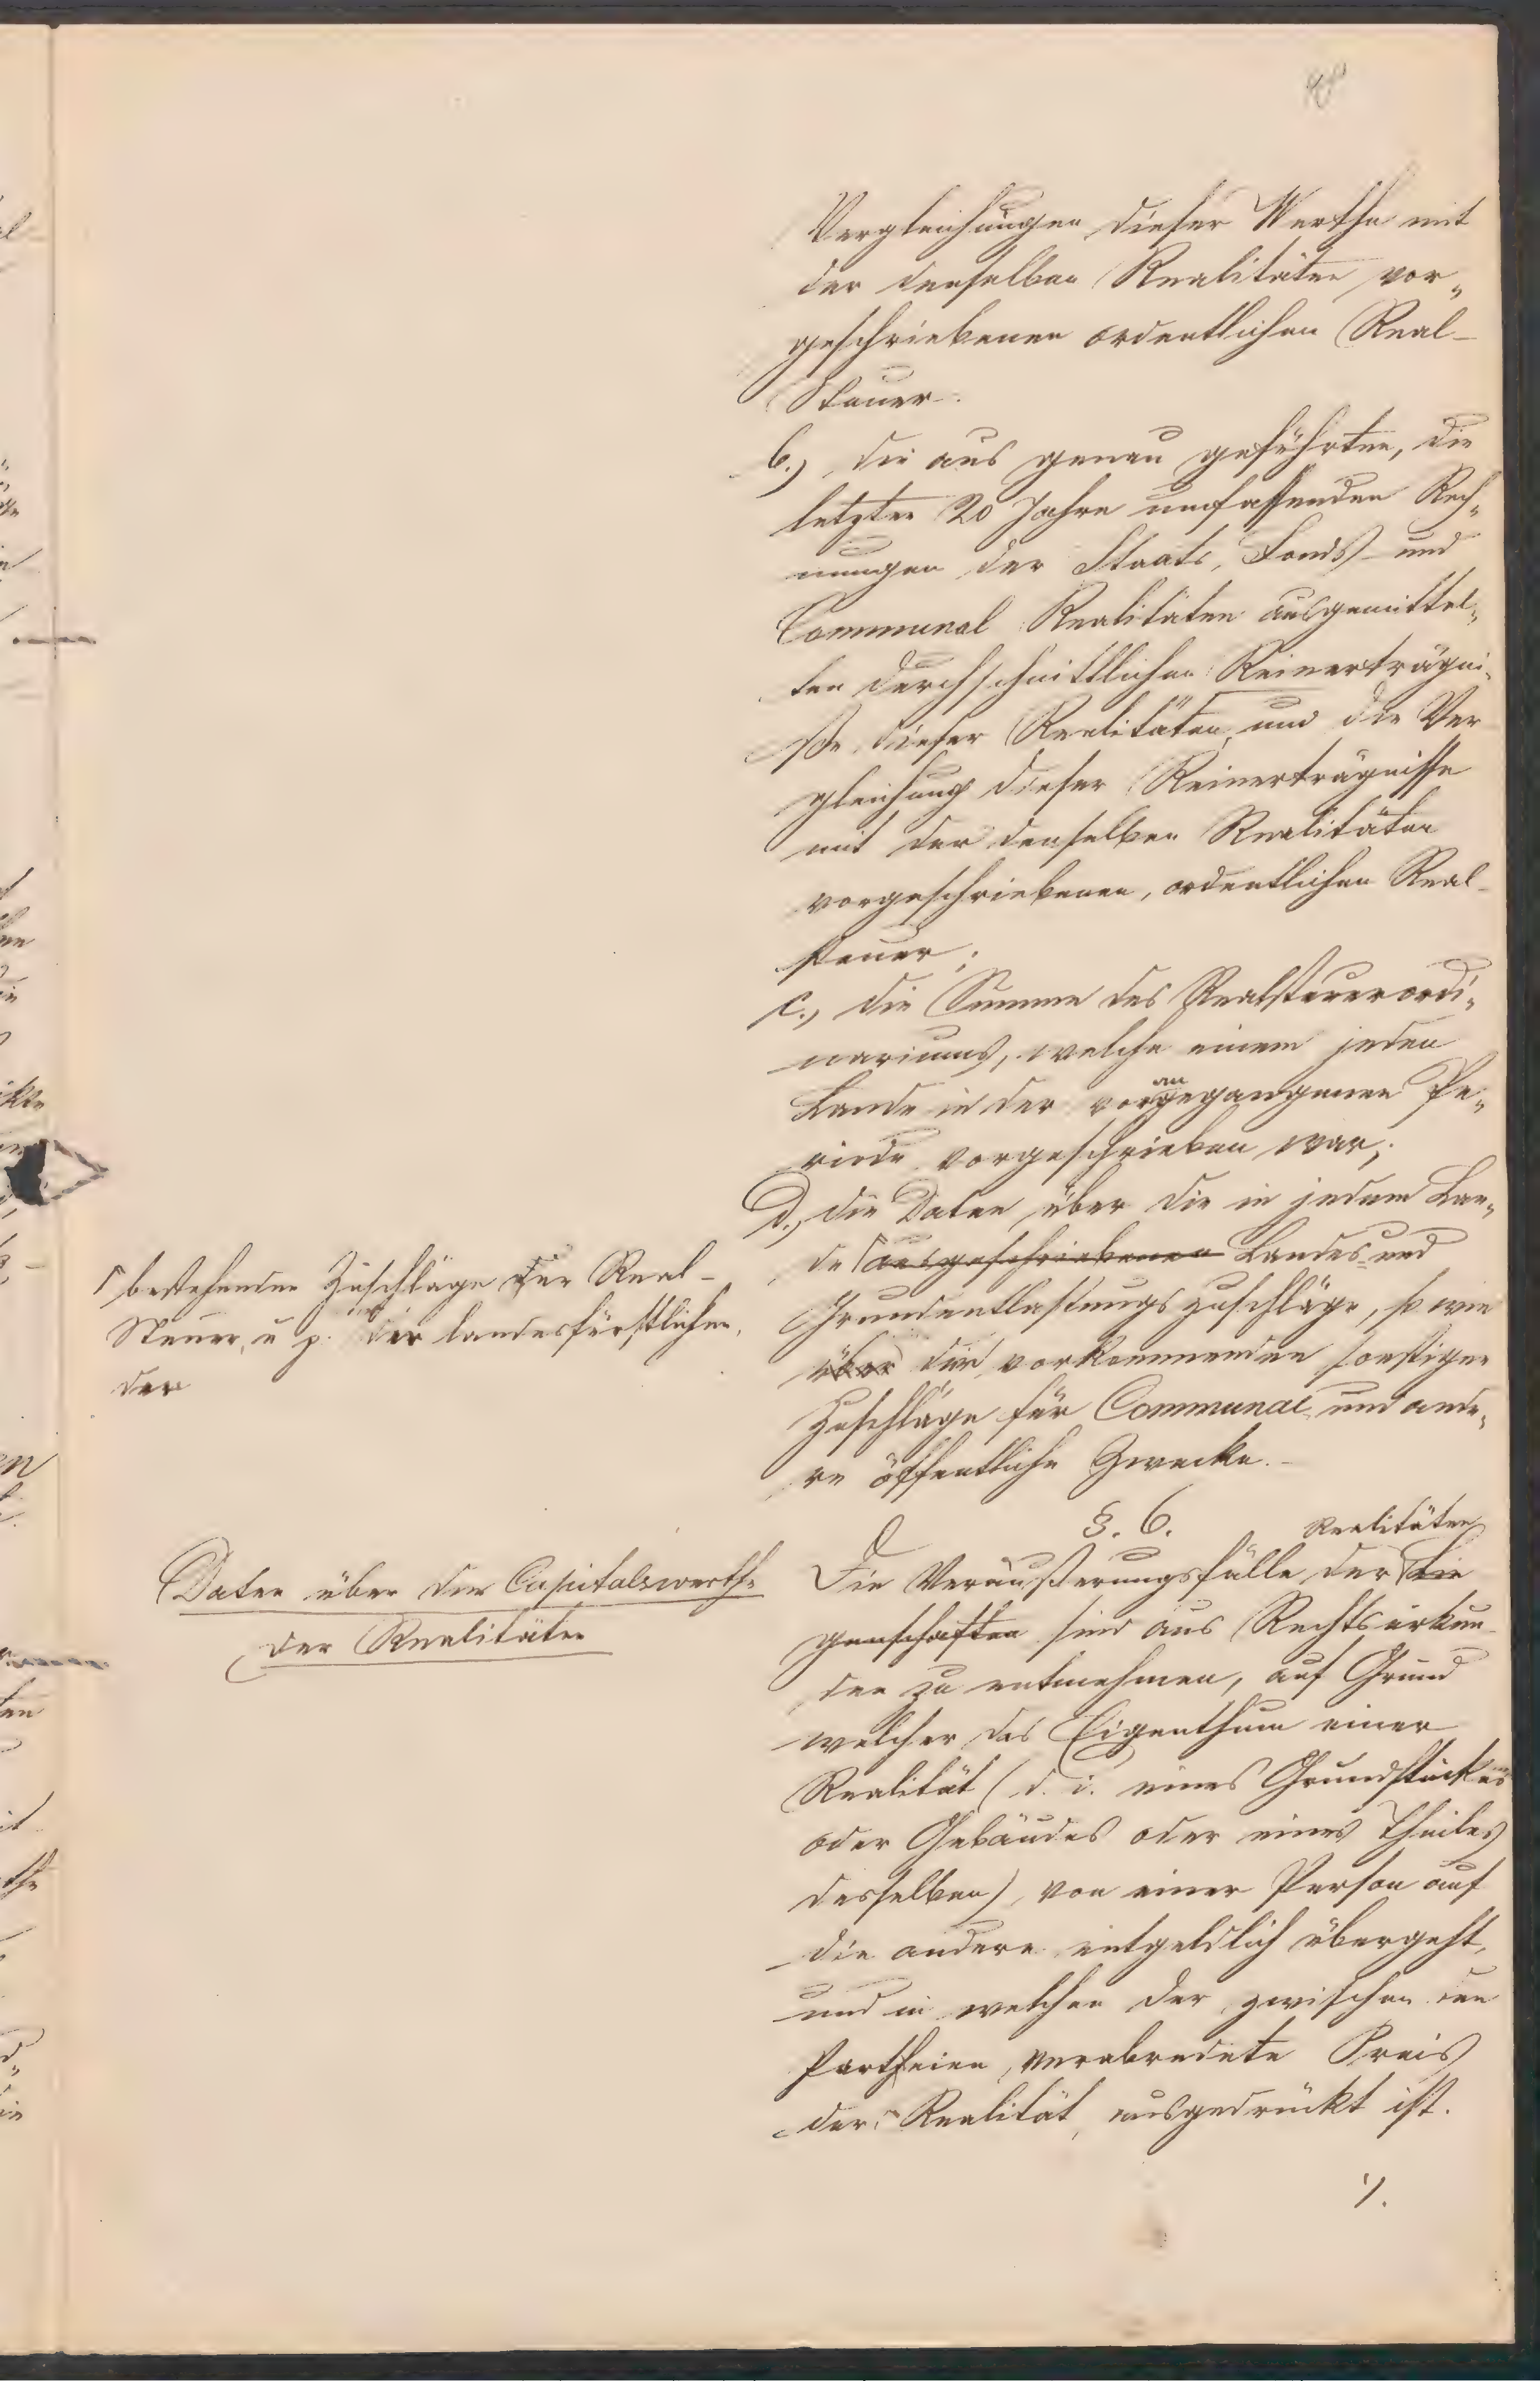 Vergleichungen dieser Werthe mit
der denselben Realitäten vor„
geschriebenen ordentlichen Real-
Steuer.
b.) die aus genau geführten, die
letzten 20 Jahre umfassenden Rech„
nungen der Staats, Fonds- und
Communal Realitäten ausgemittel„
ten durchschnittlichen Reinerträgni„
ße dieser Realitäten, und die Ver
gleichung dieser Reinerträgnisse
mit der denselben Realitäten
vorgeschriebenen, ordentlichen Real-
steuer;
c., die Summe des Realsteuerordi„
nariums, welche einem jeden
an
Lande in der vorgegangenen Pe„
riode vorgeschrieben war;
d., die Daten über die in jedem Lan„
de ausgeschriebenen Landes- und
Grundentlastungszuschläge, so wie
über die vorkommenden sonstigen
Zuschläge für Communal- und ande„
re öffentliche Zwecke.-
bestehenden Zuschläge zur Real-
Steuer, u z. der landesfürstlichen,
der
§. 6.
Daten über den Capitalswerth
der Realitäten
Realitäten
Die Veräußerungsfälle der Lie
genschaften sind aus Rechtsurkun-
den zu entnehmen, auf Grund
welcher das Eigenthum einer
Realität (d. i. eines Grundstückes
oder Gebäudes oder eines Theiles
desselben), von einer Person auf
die andere entgeldlich übergeht,
und in welchen der zwischen den
Partheien verabredete Preis
der Realität ausgedrückt ist.